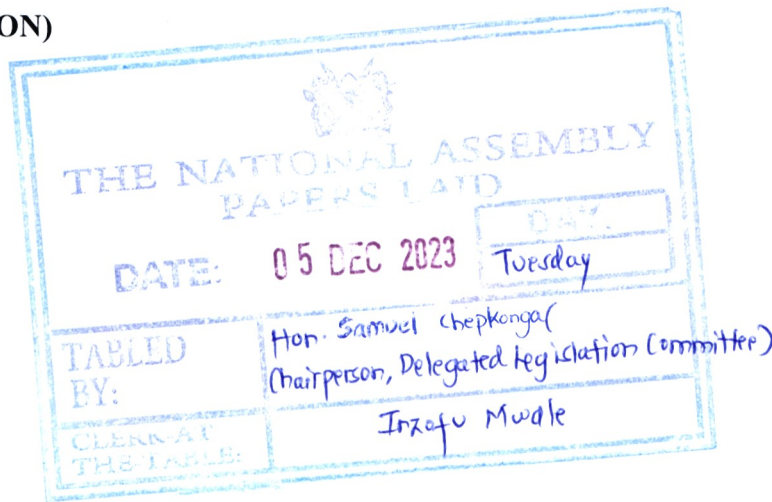 ON)
THE NATIONAL ASSEMBLY
PAPERS LAID
DATE: 05 DEC 2023
DAY.
Tuesday
TABLED BY:
Hon. Samuel Chepkonga(
Chairperson, Delegated Legislation Committee)
CLERK-AT THE-TABLE:
Inzofu Mwale